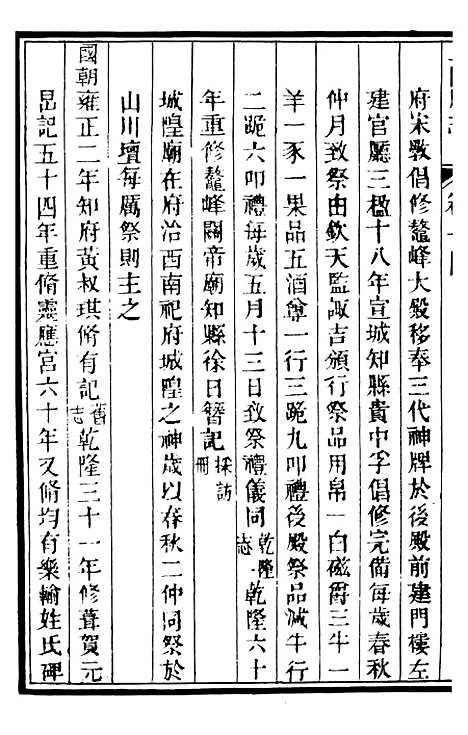 府宋斆倡修鼇峰大殿移奉三代神牌於後殿前建門樓左
建官廳三楹十八年宣城知縣貴中孚倡修完備每歲春秋
仲月致祭由欽天監諏吉頒行祭品用帛一白磁爵三牛一
羊一豕一果品五酒尊一行三跪九叩禮後殿祭品減牛行
二跪六叩禮每歲五月十三日致祭禮儀同乾隆志乾隆六十
年重修鼇峰關帝廟知縣徐日簪記採訪冊
城隍廟在府治西南祀府城隍之神歲以春秋二仲同祭於
山川壇每厲祭則主之
國朝雍正二年知府黃叔琪脩有記舊志乾隆三十一年修葺賀元
昂記五十四年重脩靈應宮六十年又脩均有樂輸姓氏碑